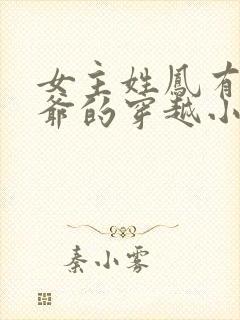 女主姓凤有
爷的穿越小
秦小雾